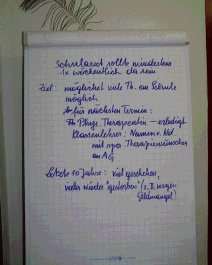 Sekretariat sollte mindestens
1x wöchentlich da sein
Ziel: möglichst viele Th. an Schule
möglich
für nächsten Termin:
Physiotherapeutin – erledigt
Klassenlehrer: Namen v. Kd.
mit Therapiewünschen
an AG
Letzte 10 Jahre: viel geschehen,
vieles wieder "gestorben" (z.B. wegen
Geldmangel)